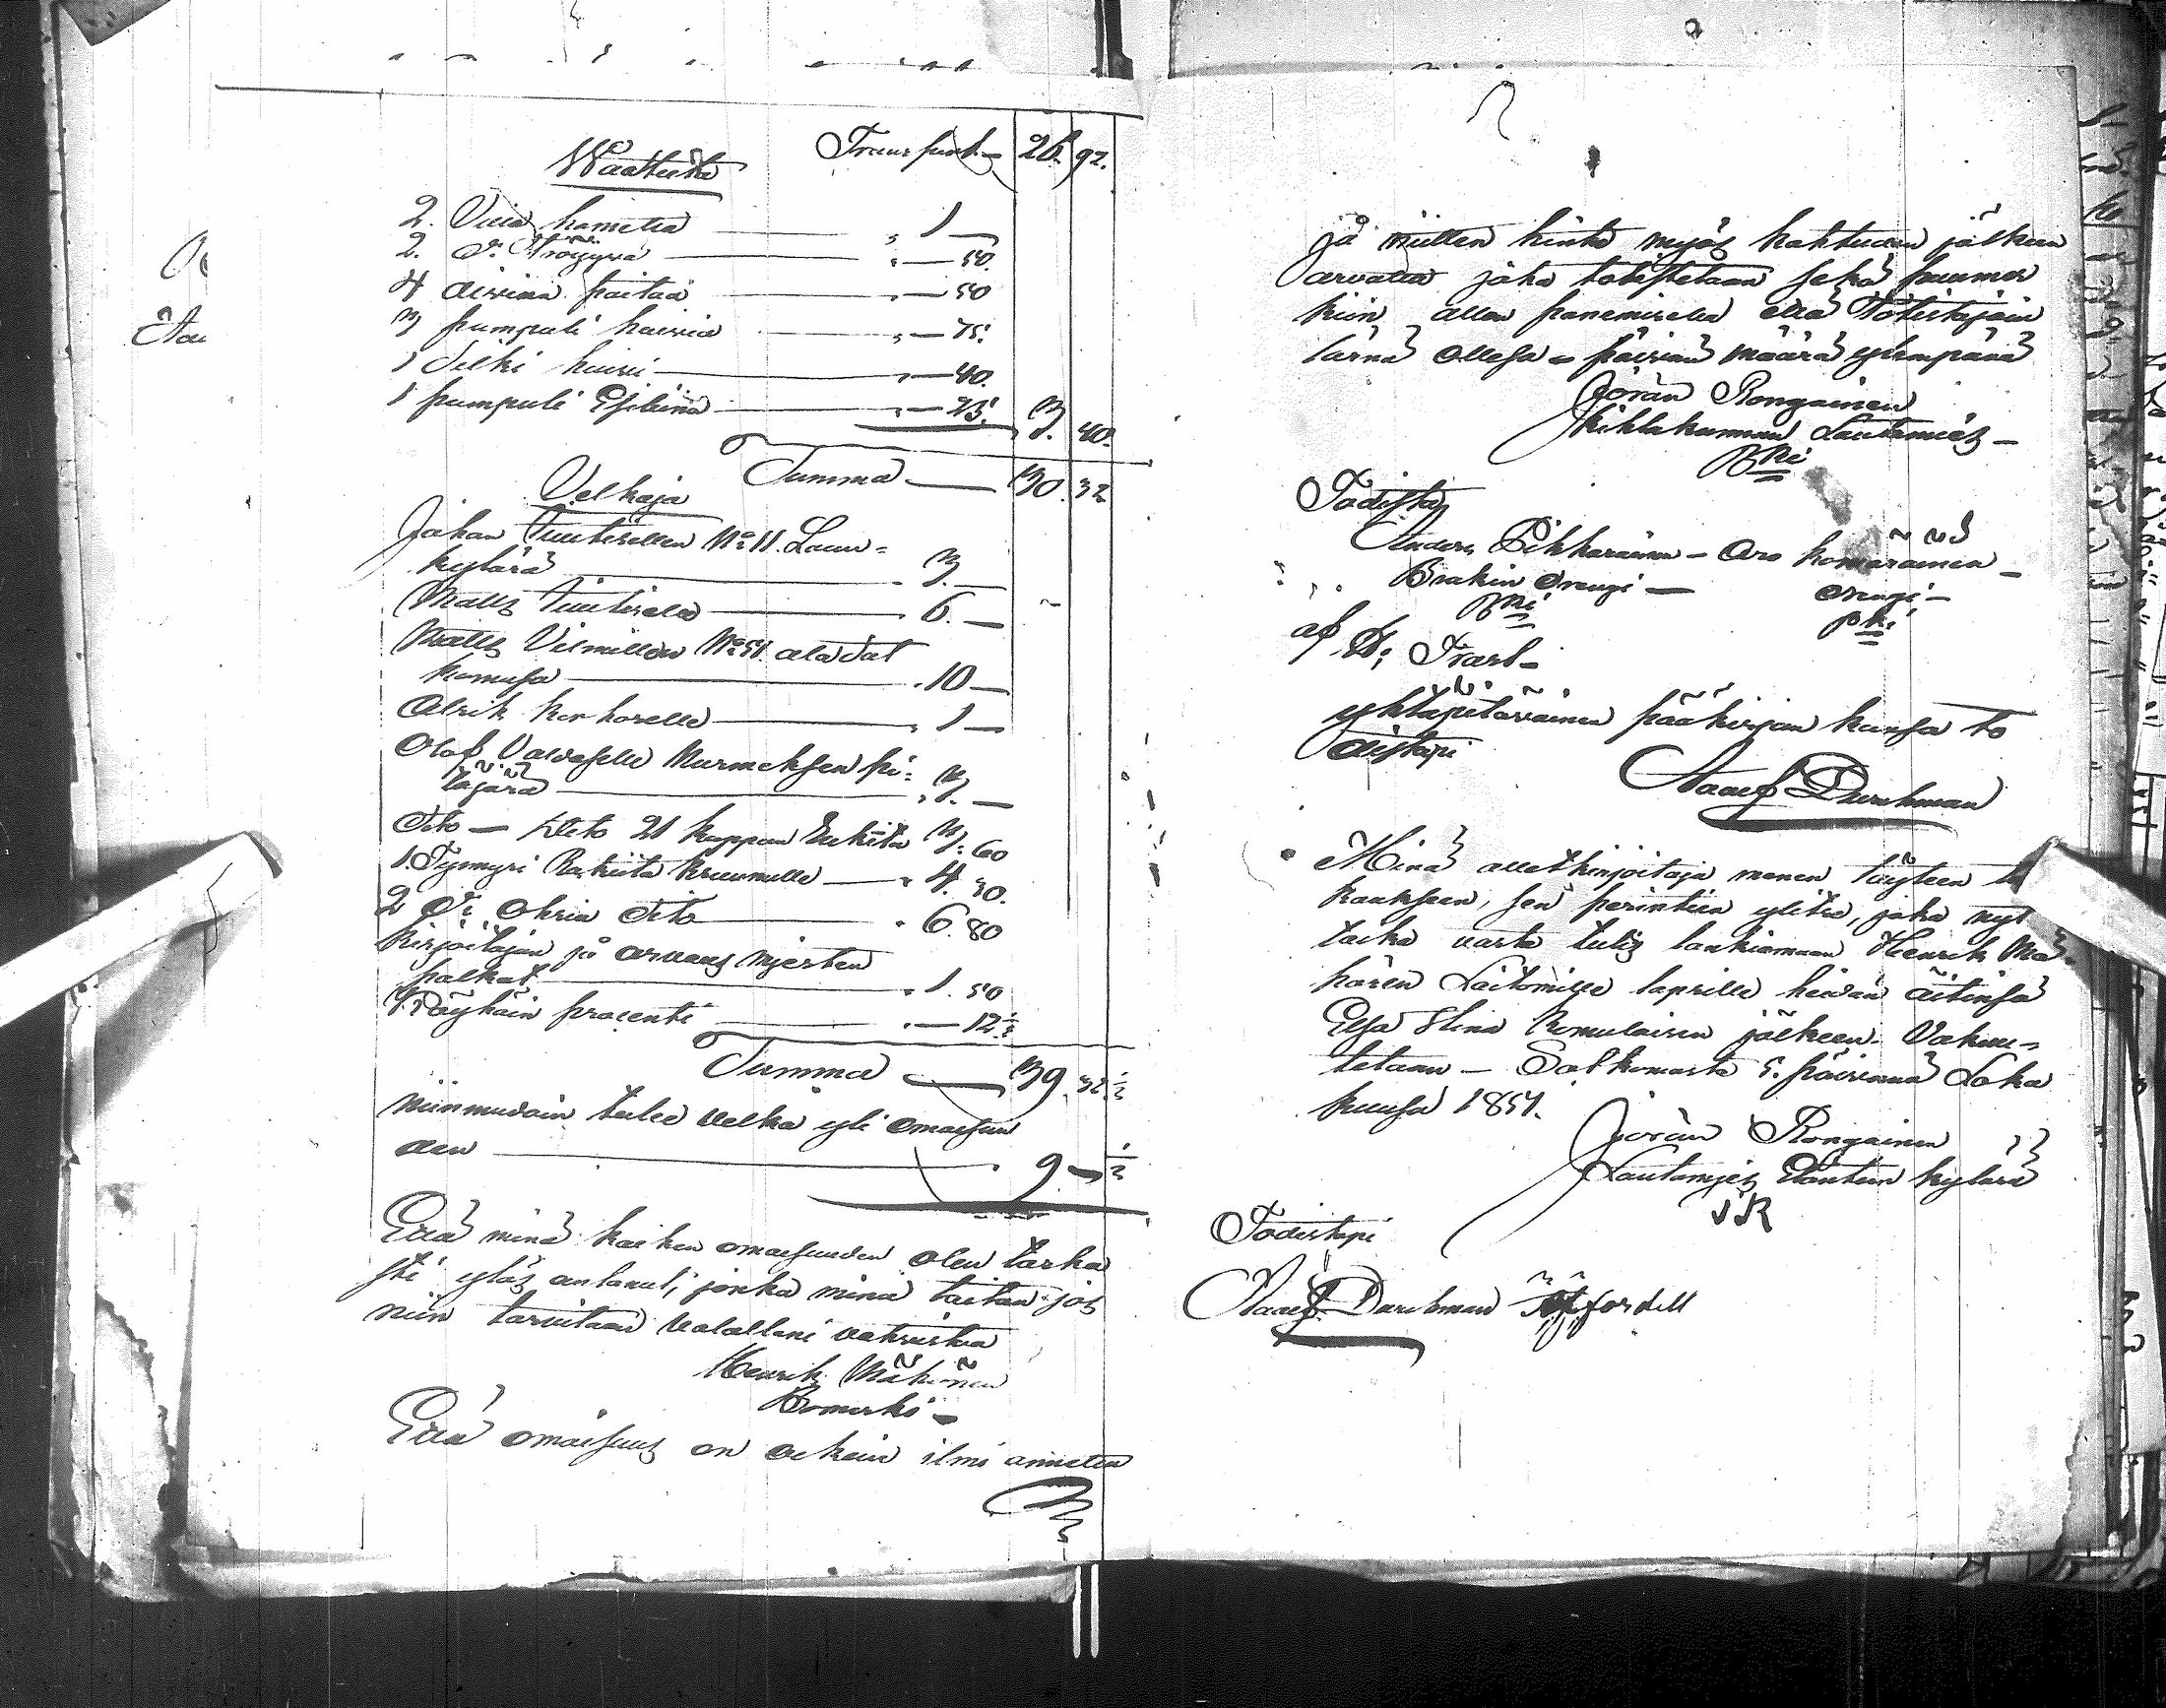 Transport 26. 92.
Waatteita
2. Uuia hametta 1 —
2. Dº Tröijyiä " — 50.
4 aivina paitaa " — 50
3 pumpuli huivia " — 75.
1 Silki huivi " — 40.
1 pumpuli Esiliina " — 25. 3. 40.
Summa 30. 32
Velkoja
Johan Tuutisellen Nº 11. Laun=
kylärä 3. —
Matts Tuutisela 6. —
Matts Vilmillen Nº 51 ala Sot
kamosa 10 —
Alrik Korhoselle 1 —
Olof Valdaselle Nurmeksen pi=
täjärä 3. —
Dito — Dito 21 kappan Rukita 3. 60
1. Tynnyri Rukiita kruunulle 4. 30.
2 Dº Ohria Dito 6. 80
Kirjoitajan jä arvaus miesten
palkat 1. 50
Köyhäin procenti — 12 ½
Summa 39. 32 ½
niinmuodoin tulee velka yli omaisuu
den 9 — ½
Että minä kaiken omaisuuden olen tarka
sti ylös antanut, jonka minä taitan jos
niin tarvitaan valallani vahvistaa
Henrik Mähönen
Bomerki —
Että omaisuus on oikein ilmi annettu
jä niitten hinta myös kohtuuden jälkeen
arvattu joka totistetaan sekä puumer
kin allen panemisella että Totistajain
läsnä ollesa — päivänä määrä ylempänä
Göran Rongainen
Kihlakunnan Lautamies —
Bmi
Todista
Anders Pikkarainen — Aro komarainen —
Brakin Drengi — Drengi —
Bmi pki
af
yhtäpitäväinen pääkirjan kansa to
distapi
Staaf Durchman
Minä alletkirjoitaja menen täyteen ta
kaukseen, sen perintön ylitse, joka nyt
taika varta tulis lankiamaan Henrik Mä=
hösen Laitomille lapsille heidän äitinsä
Elsa Stina Komulaisen jälkeen. Vakuu=
tetaan — Sotkamosta 5. päivänä Loka
kuusa 1854.
Göran Rongainen
Lautamies Tantun kylärä
Todistapi
Staaf Durchman